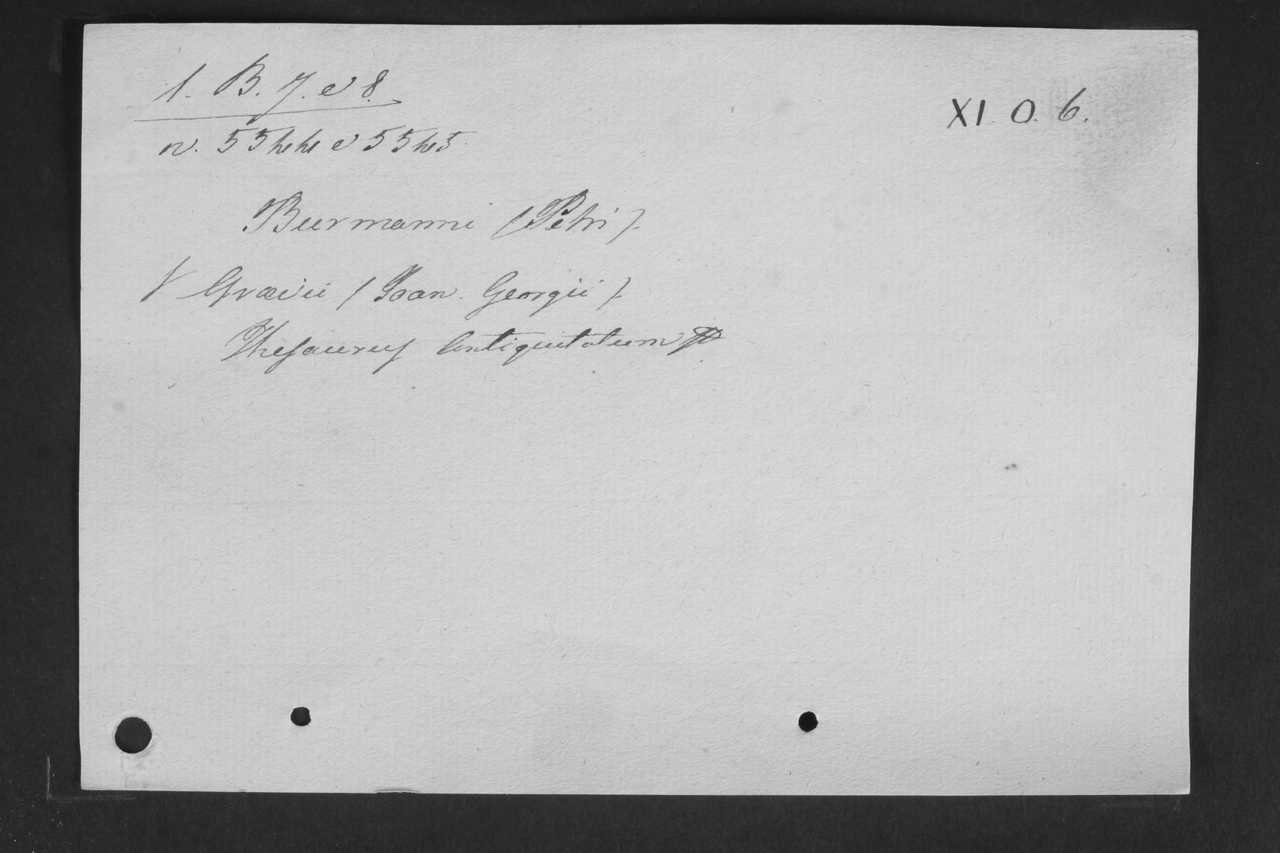 1. B. 7. e 8.
XI. O. 6.
n. 5544 e 5545
Burmanni (Petri).
V Grævii (Joan. Georgii).
Thesaurus Antiquitatum